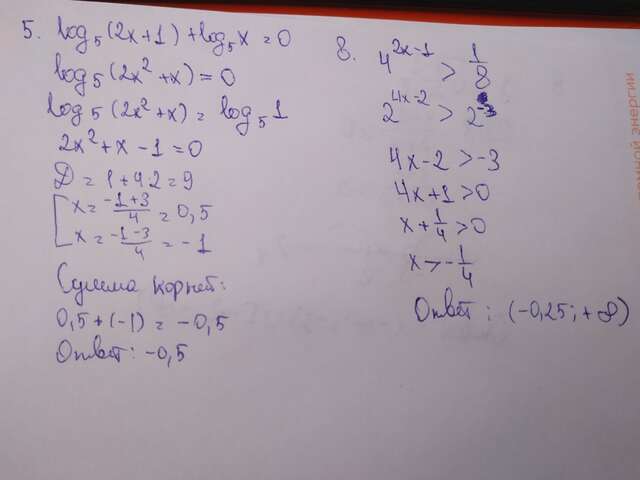 5. log₅(2x+1)+log₅x=0
log₅(2x²+x)=0
log₅(2x²+x)=log₅1
2x²+x-1=0
D=1+4·2=9
[x=(-1+3)/4=0,5
x=(-1-3)/4=-1
Сумма корней:
0,5+(-1)=-0,5
Ответ: -0,5
8. 4^(2x-1)>1/8
2^(4x-2)>2^(-3)
4x-2>-3
4x+1>0
x+1/4>0
x>-1/4
Ответ: (-0,25;+∞)
энергии